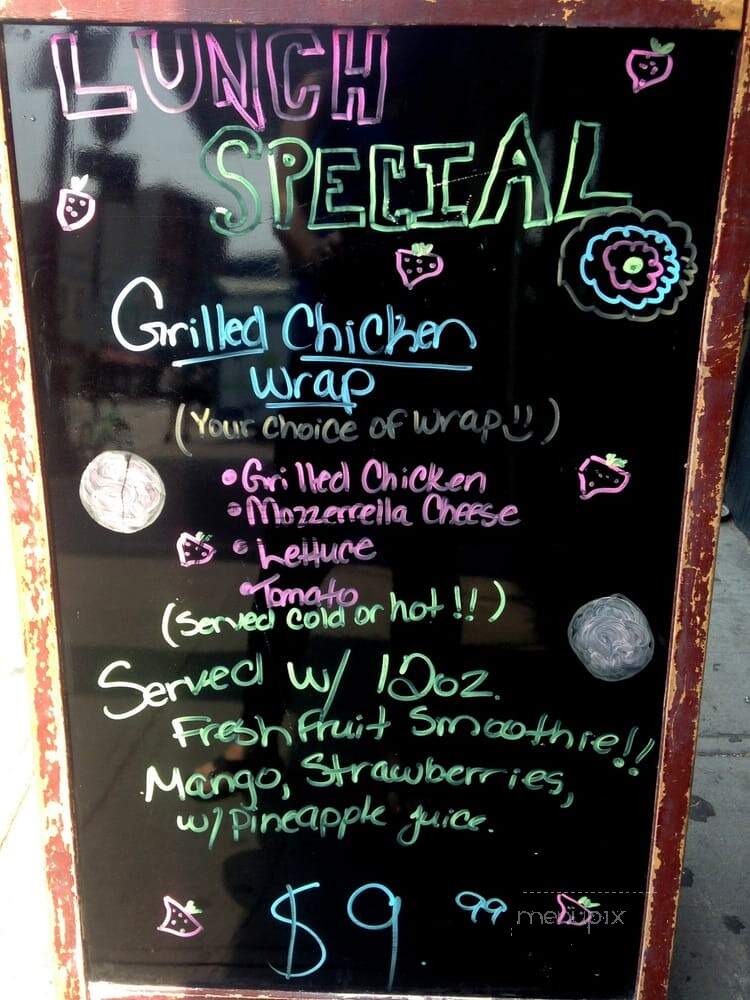 LUNCH
SPECIAL
Grilled Chicken
Wrap
(Your choice of wrap!!)
•Grilled Chicken
•Mozzerrella Cheese
•Lettuce
•Tomato
(Served cold or hot!!)
Served w/ 12oz.
Fresh Fruit Smoothie!!
Mango, Strawberries,
w/ Pineapple juice.
$9.99
menupix